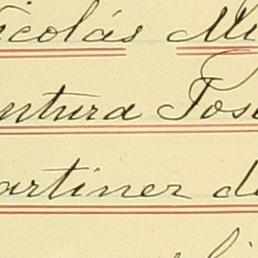 icolás Mu
ntura Jos
artinez d